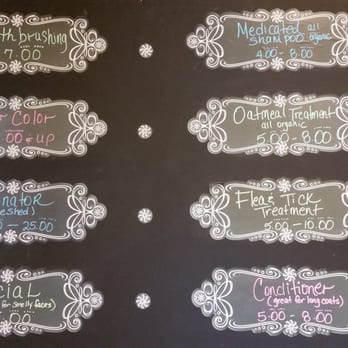 th brushing
7.00
Color
.00 & up
nator
eshed)
- 25.00
cial
for smelly faces)
.00
Medicated all
Shampoo organic
4.00 - 8.00
Oatmeal Treatment
all organic
5.00 - 8.00
Flea & Tick
Treatment
5.00 - 10.00
Conditioner
(great for long coats)
5.00 - 8.00